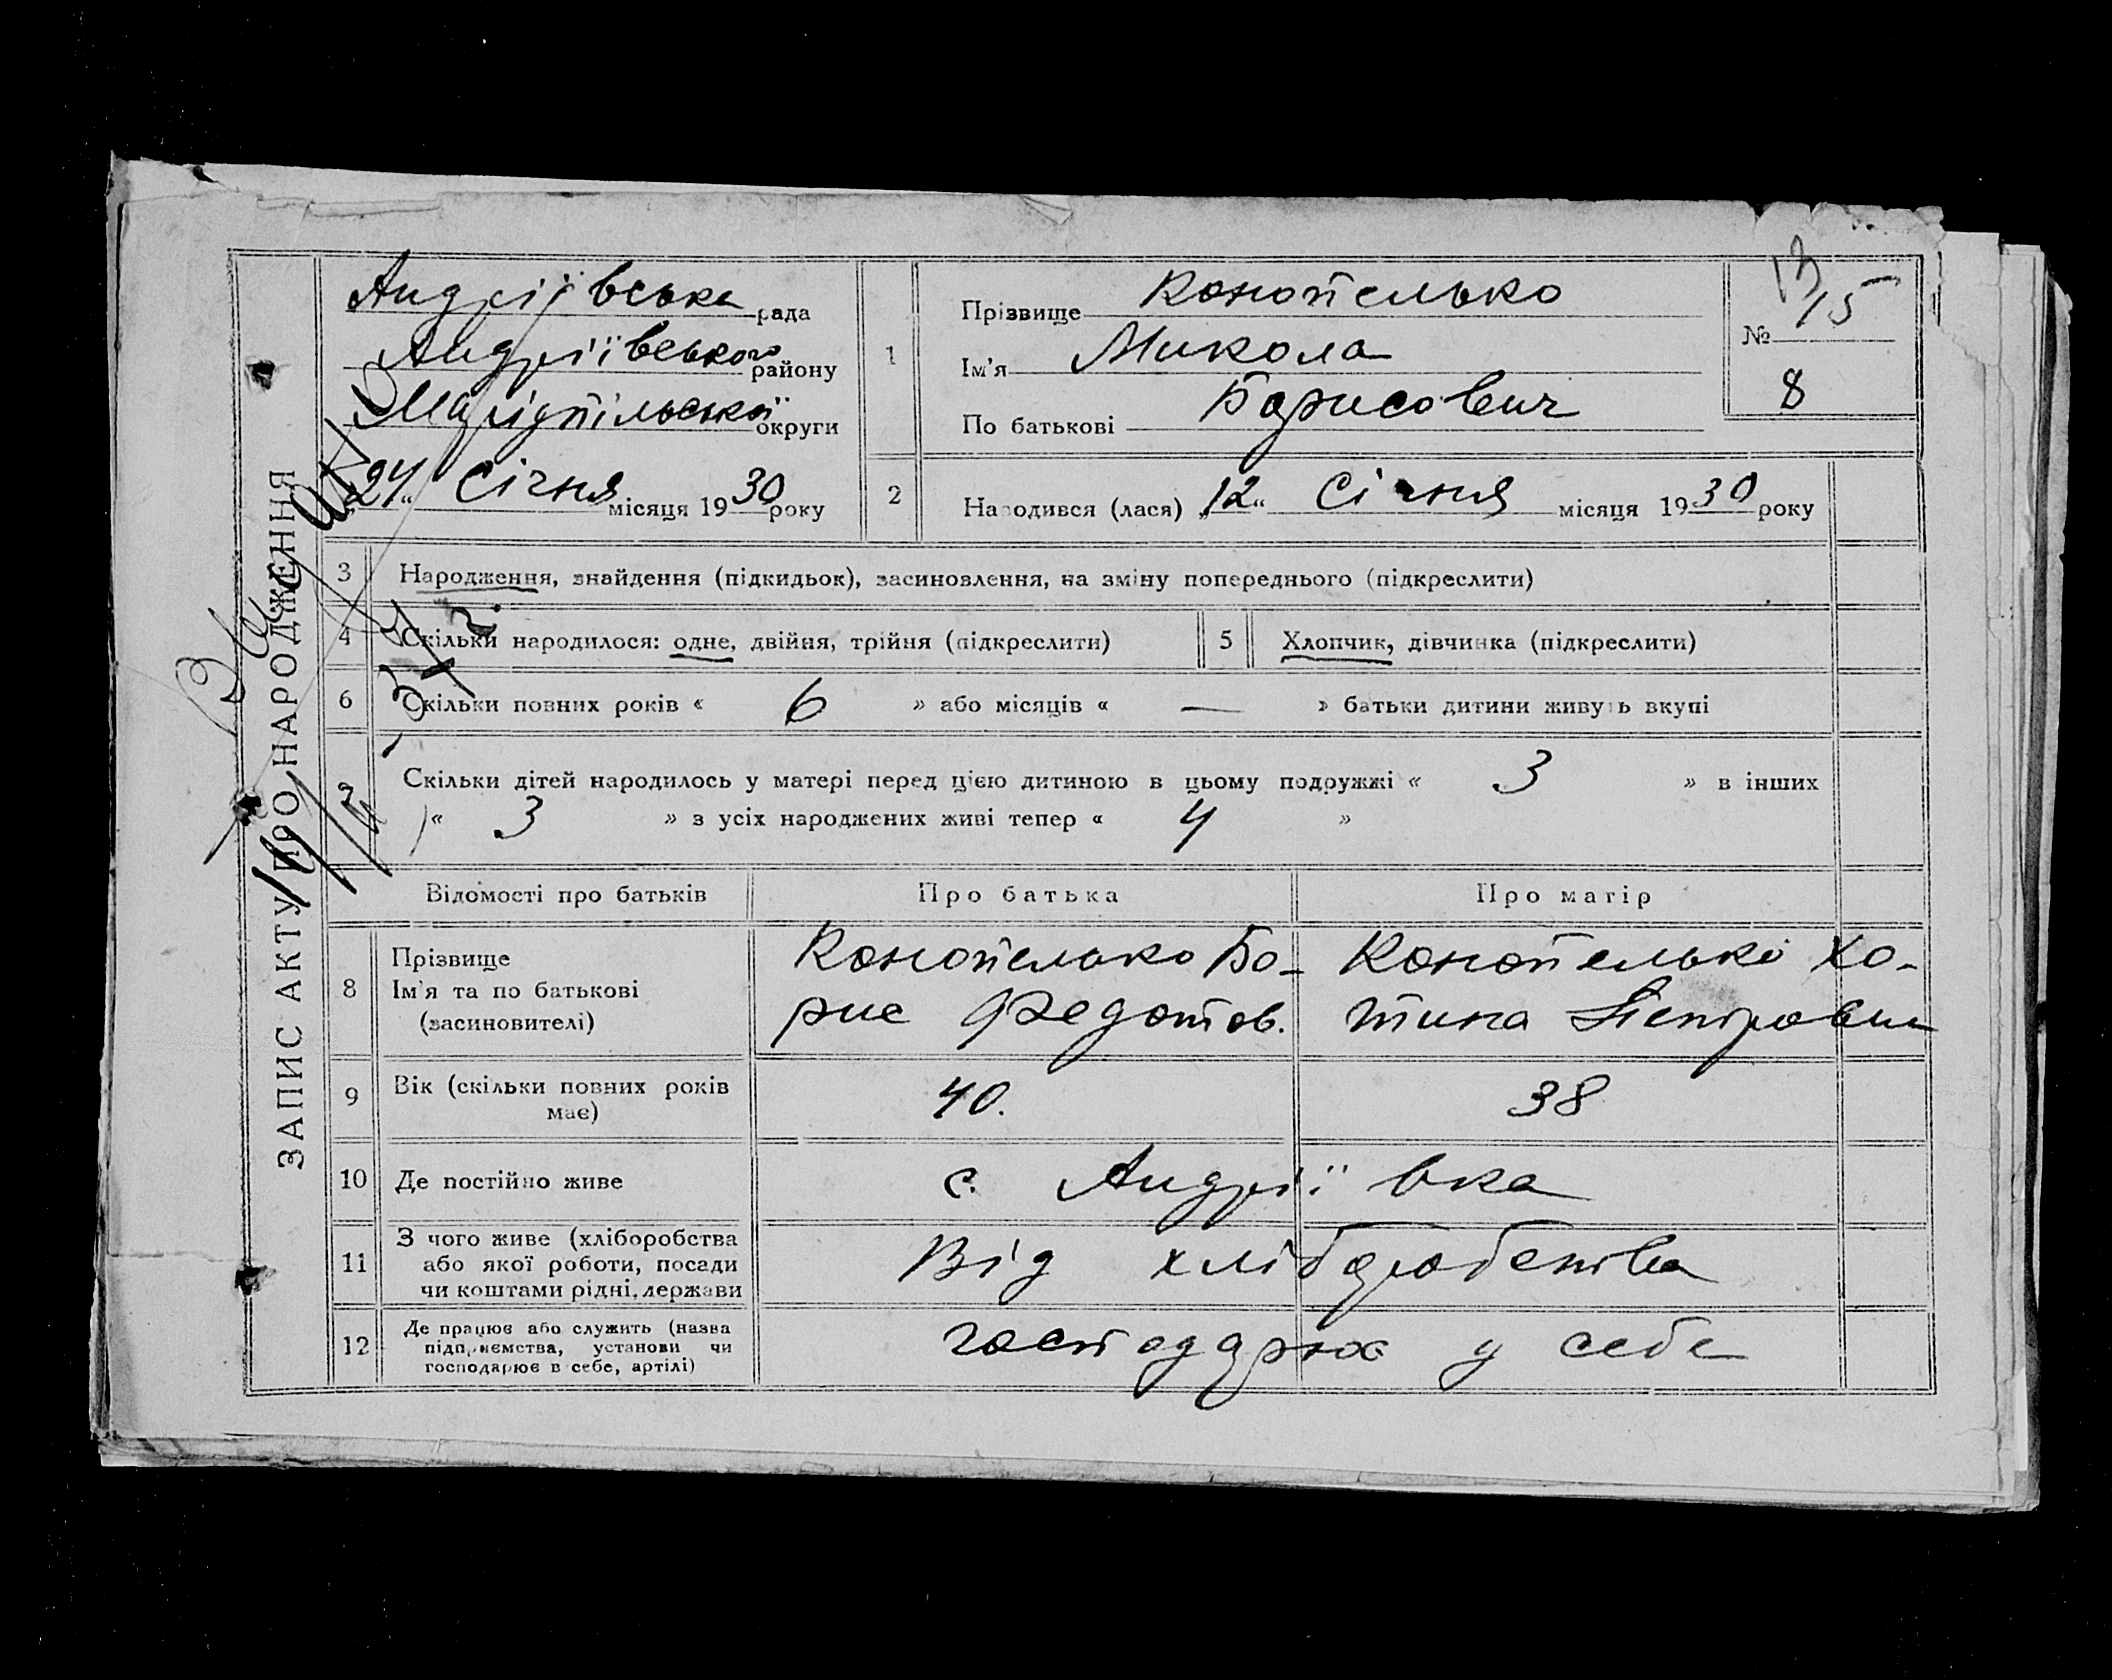 ЗАПИС АКТУ ПРО НАРОДЖЕННЯ
Андріївська рада
Андріївського району
Маріупільської округи
„24“ Січня місяця 1930 року
1
Прізвище Конопелько
Ім'я Микола
По батькові Борисович
13/15
№
8
2
Народився (лася) „12“ Січня місяця 1930 року
3 Народження, знайдення (підкидьок), засиновлення, на зміну попереднього (підкреслити)
4 Скільки народилося: одне, двійня, трійня (підкреслити)
5 Хлопчик, дівчинка (підкреслити)
6 Скільки повних років « 6 » або місяців « — » батьки дитини живуть вкупі
7 Скільки дітей народилось у матері перед цією дитиною в цьому подружжі « 3 » в інших
« 3 » з усіх народжених живі тепер « 4 »
Відомості про батьків Про батька Про матір
8 Прізвище
Ім'я та по батькові
(засиновителі)
Конопелько Бо-
рис Федотов.
Конопелько Хо-
тина Петровна
9 Вік (скільки повних років
має)
40. 38
10 Де постійно живе с. Андріївка
11 З чого живе (хліборобства
або якої роботи, посади
чи коштами рідні, держави
Від хліборобства
12 Де працює або служить (назва
підприємства, установи чи
господарює в себе, артілі)
у себе